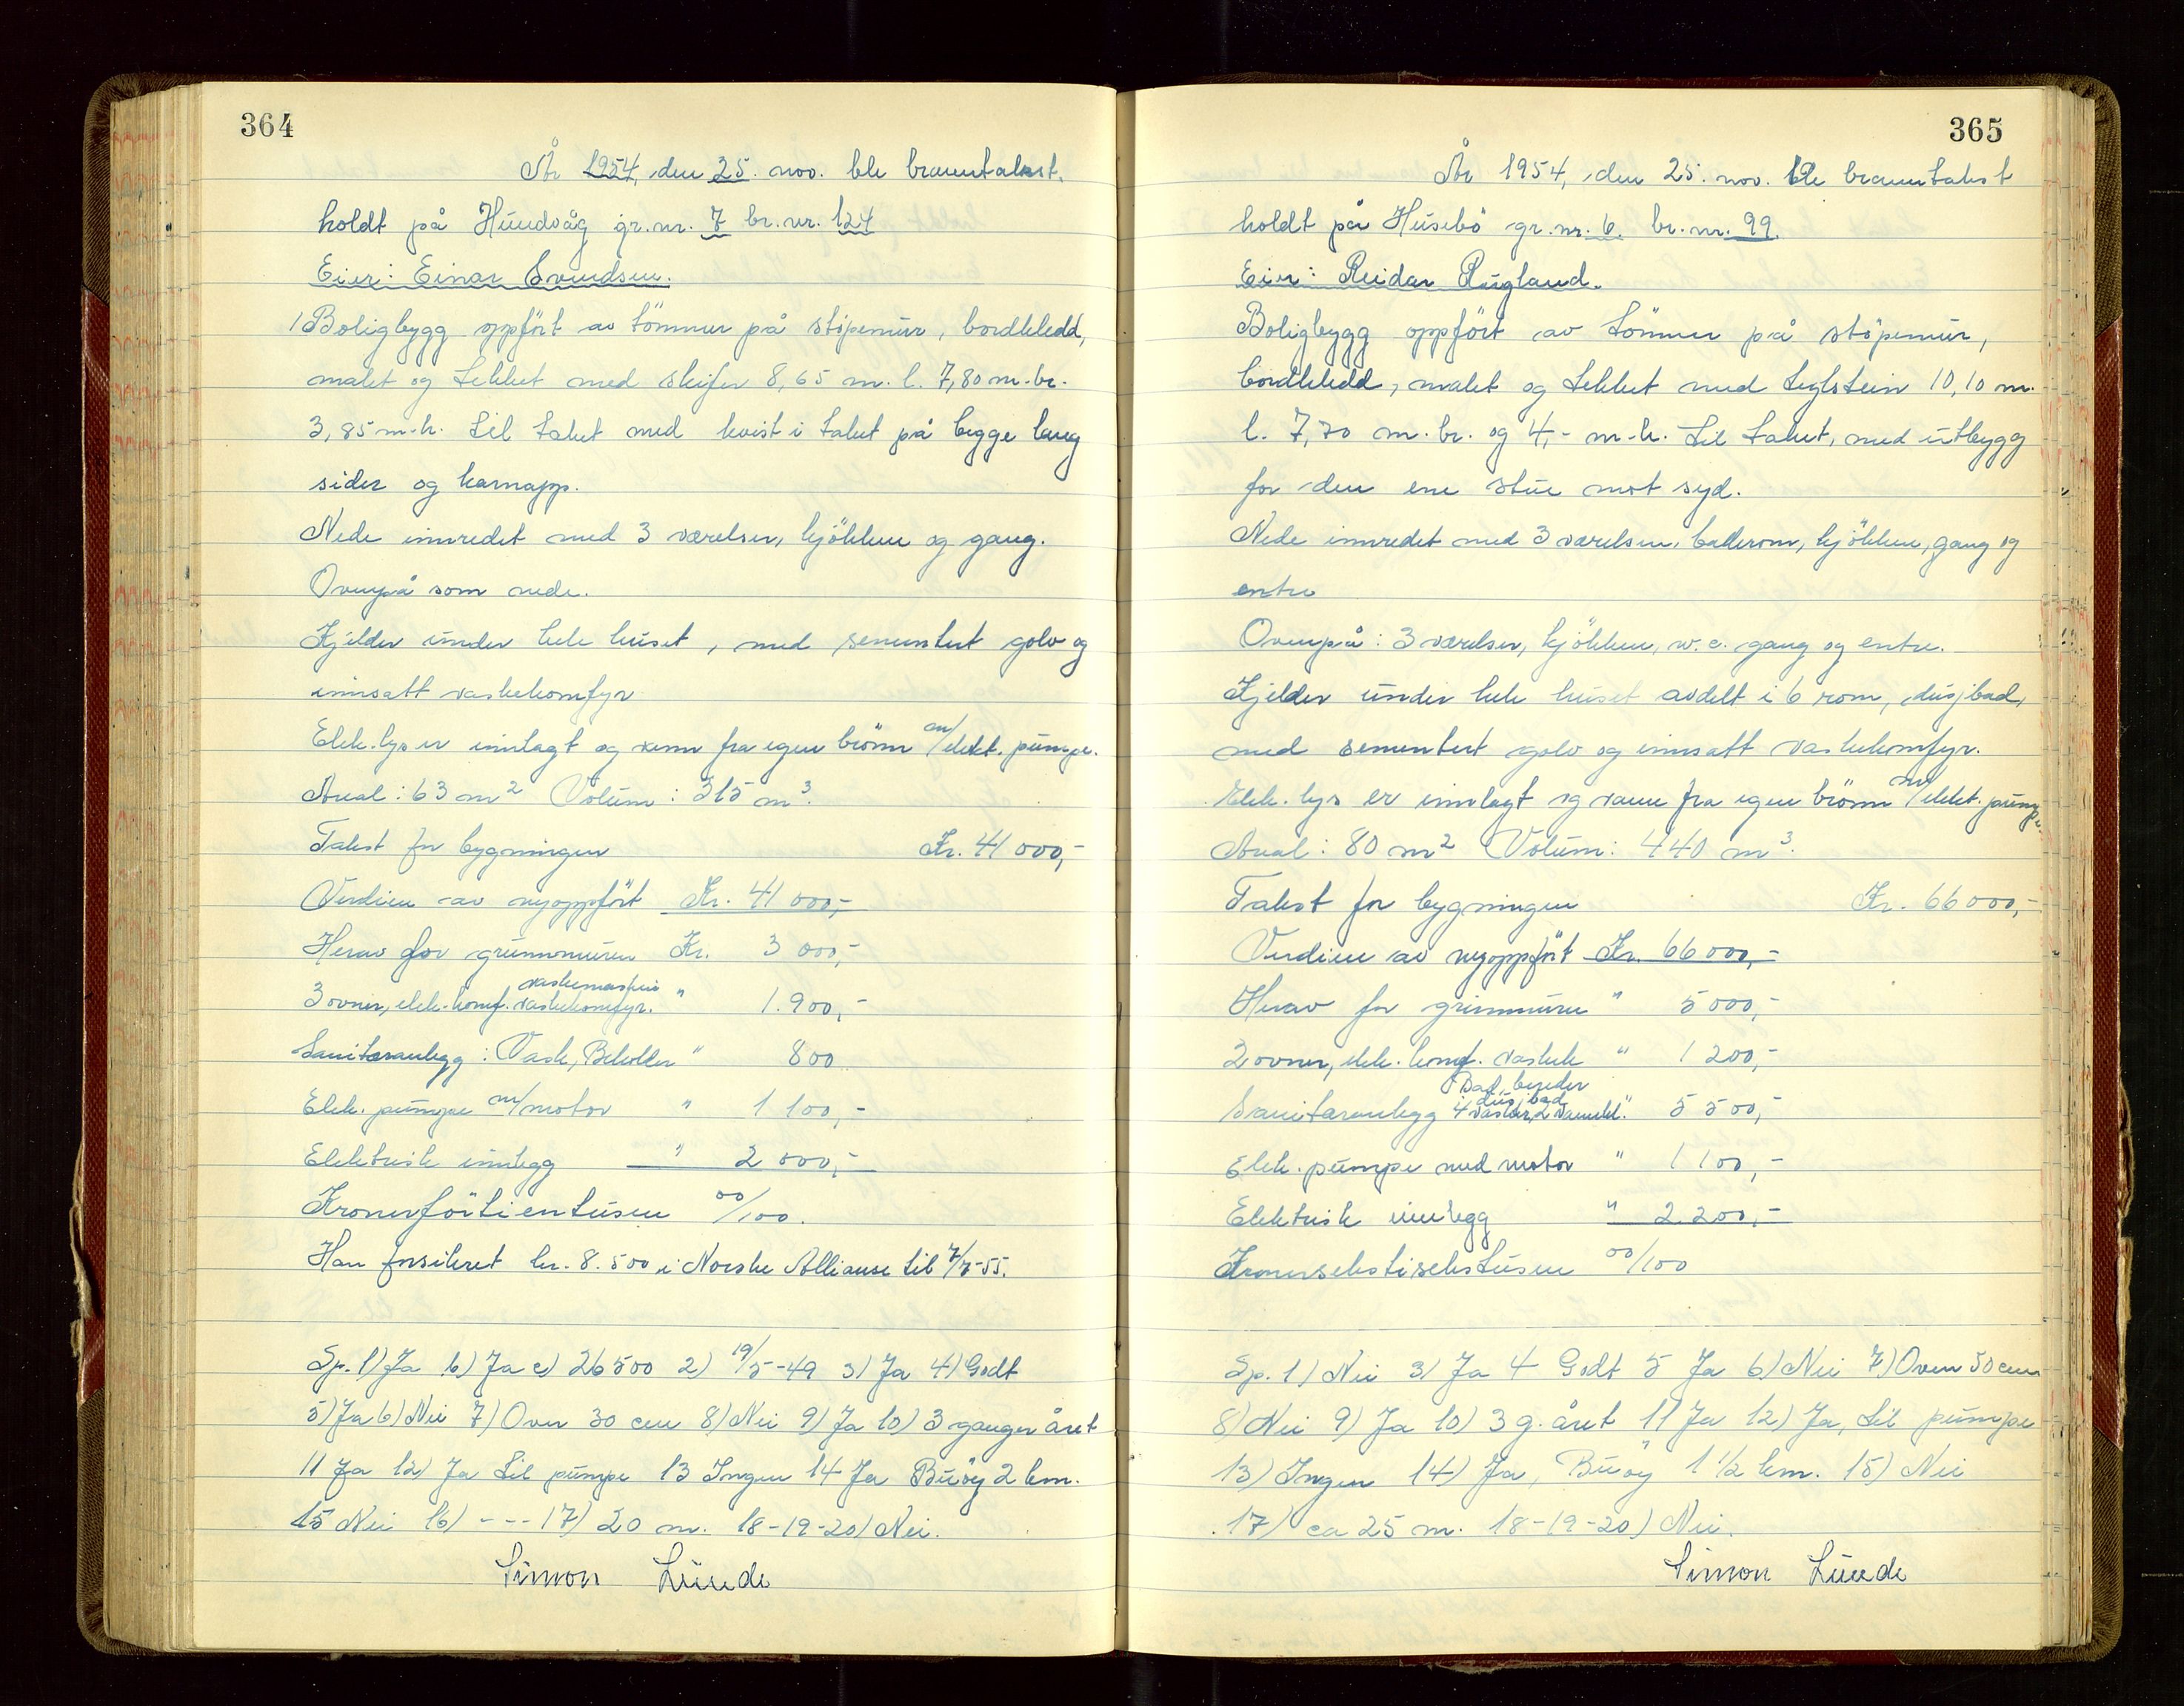 364
År 1954, den 25. nov. ble branntakst.
holdt på Hundvåg gr.nr. 7 br.nr. 124
Eier: Einar Svendsen.
1 Boligbygg oppfört av tömmer på støpemur, bordkledd,
malet og tekket med skifer 8,65 m. l. 7,80 m. br.
3,85 m. h. til taket med kvist i taket på begge lang
sider og karnapp.
Nede innredet med 3 værelser, kjökken og gang.
Ovenpå som nede.
Kjelder under hele huset, med sementert golv og
innsatt vaskekomfyr
Elek. lys er innlagt og vann fra egen brönn m/elekt. pumpe.
Areal: 63 m² Volum: 315 m³.
Takst for bygningen Kr. 41 000,-
Verdien av nyoppfört Kr. 41 000,-
Herav for grunnmuren Kr. 3 000,-
vaskemaskin
3 ovner, elek. komf. vaskekomfyr. " 1.900,-
Sanitæranlegg: Vask, Beholder " 800
Elek. pumpe m/motor " 1 100,-
Elektrisk innlegg " 2 000,-
Kronerförtientusen 00/100.
Har forsikret kr. 8.500 i Norske Allianse til 7/7-55.
Sp. 1) Ja b) Ja c) 26500 2) 19/5-49 3) Ja 4) Godt
5) Ja 6) Nei 7) Over 30 cm 8) Nei 9) Ja 10) 3 ganger året
11 Ja 12) Ja til pumpe 13 Ingen 14 Ja Buöy 2 km.
15 Nei 16) --- 17) 20 m. 18-19-20) Nei.
Simon Lunde
365
År 1954, den 25. nov. ble branntakst
holdt på Husebö gr.nr. 6. br.nr. 99.
Eier: Reidar Rugland.
Boligbygg oppfört av tömmer på stöpemur,
bordkledd, malet og tekket med teglstein 10,10 m.
l. 7,70 m. br. og 4,- m. h. til taket, med utbygg
for den ene stue mot syd.
Nede innredet med 3 værelser, baderom, kjökken, gang og
entre
Ovenpå: 3 værelser, kjökken, w.c. gang og entre.
Kjelder under hele huset avdelt i 6 rom, dusjbad,
med sementert golv og innsatt vaskekomfyr.
Elek. lys er innlagt og vann fra egen brönn m/elekt. pumpe.
Areal: 80 m² Volum: 440 m³.
Takst for bygningen Kr. 66 000,-
Verdien av nyoppfört Kr. 66 000,-
Herav for grunnmuren " 5 000,-
2 ovner, elek. komf. vaskek " 1 200,-
Bad, bereder
dusjbad
Sanitæranlegg 4 vasker, 2 vannkl. " 5 500,-
Elek. pumpe med motor " 1 100,-
Elektrisk innlegg " 2.200,-
Kronersekstisekstusen 00/100
Sp. 1) Nei 3) Ja 4 Godt 5 Ja 6) Nei 7) Over 50 cm
8) Nei 9) Ja 10) 3 g. året 11 Ja 12) Ja, til pumpe
13) Ingen 14) Ja, Buöy 1 1/2 km. 15) Nei
17) ca 25 m. 18-19-20) Nei.
Simon Lunde